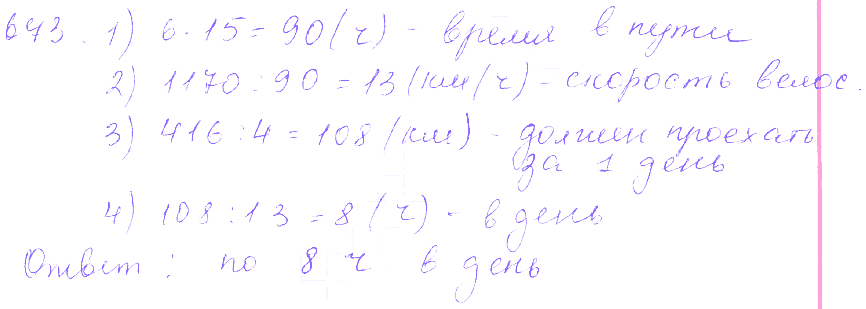 643. 1) 6·15=90(ч) - время в пути
2) 1170:90=13(км/ч) - скорость велос.
3) 416:4=108(км) - должен проехать
за 1 день
4) 108:13=8(ч) - в день
Ответ: по 8 ч в день